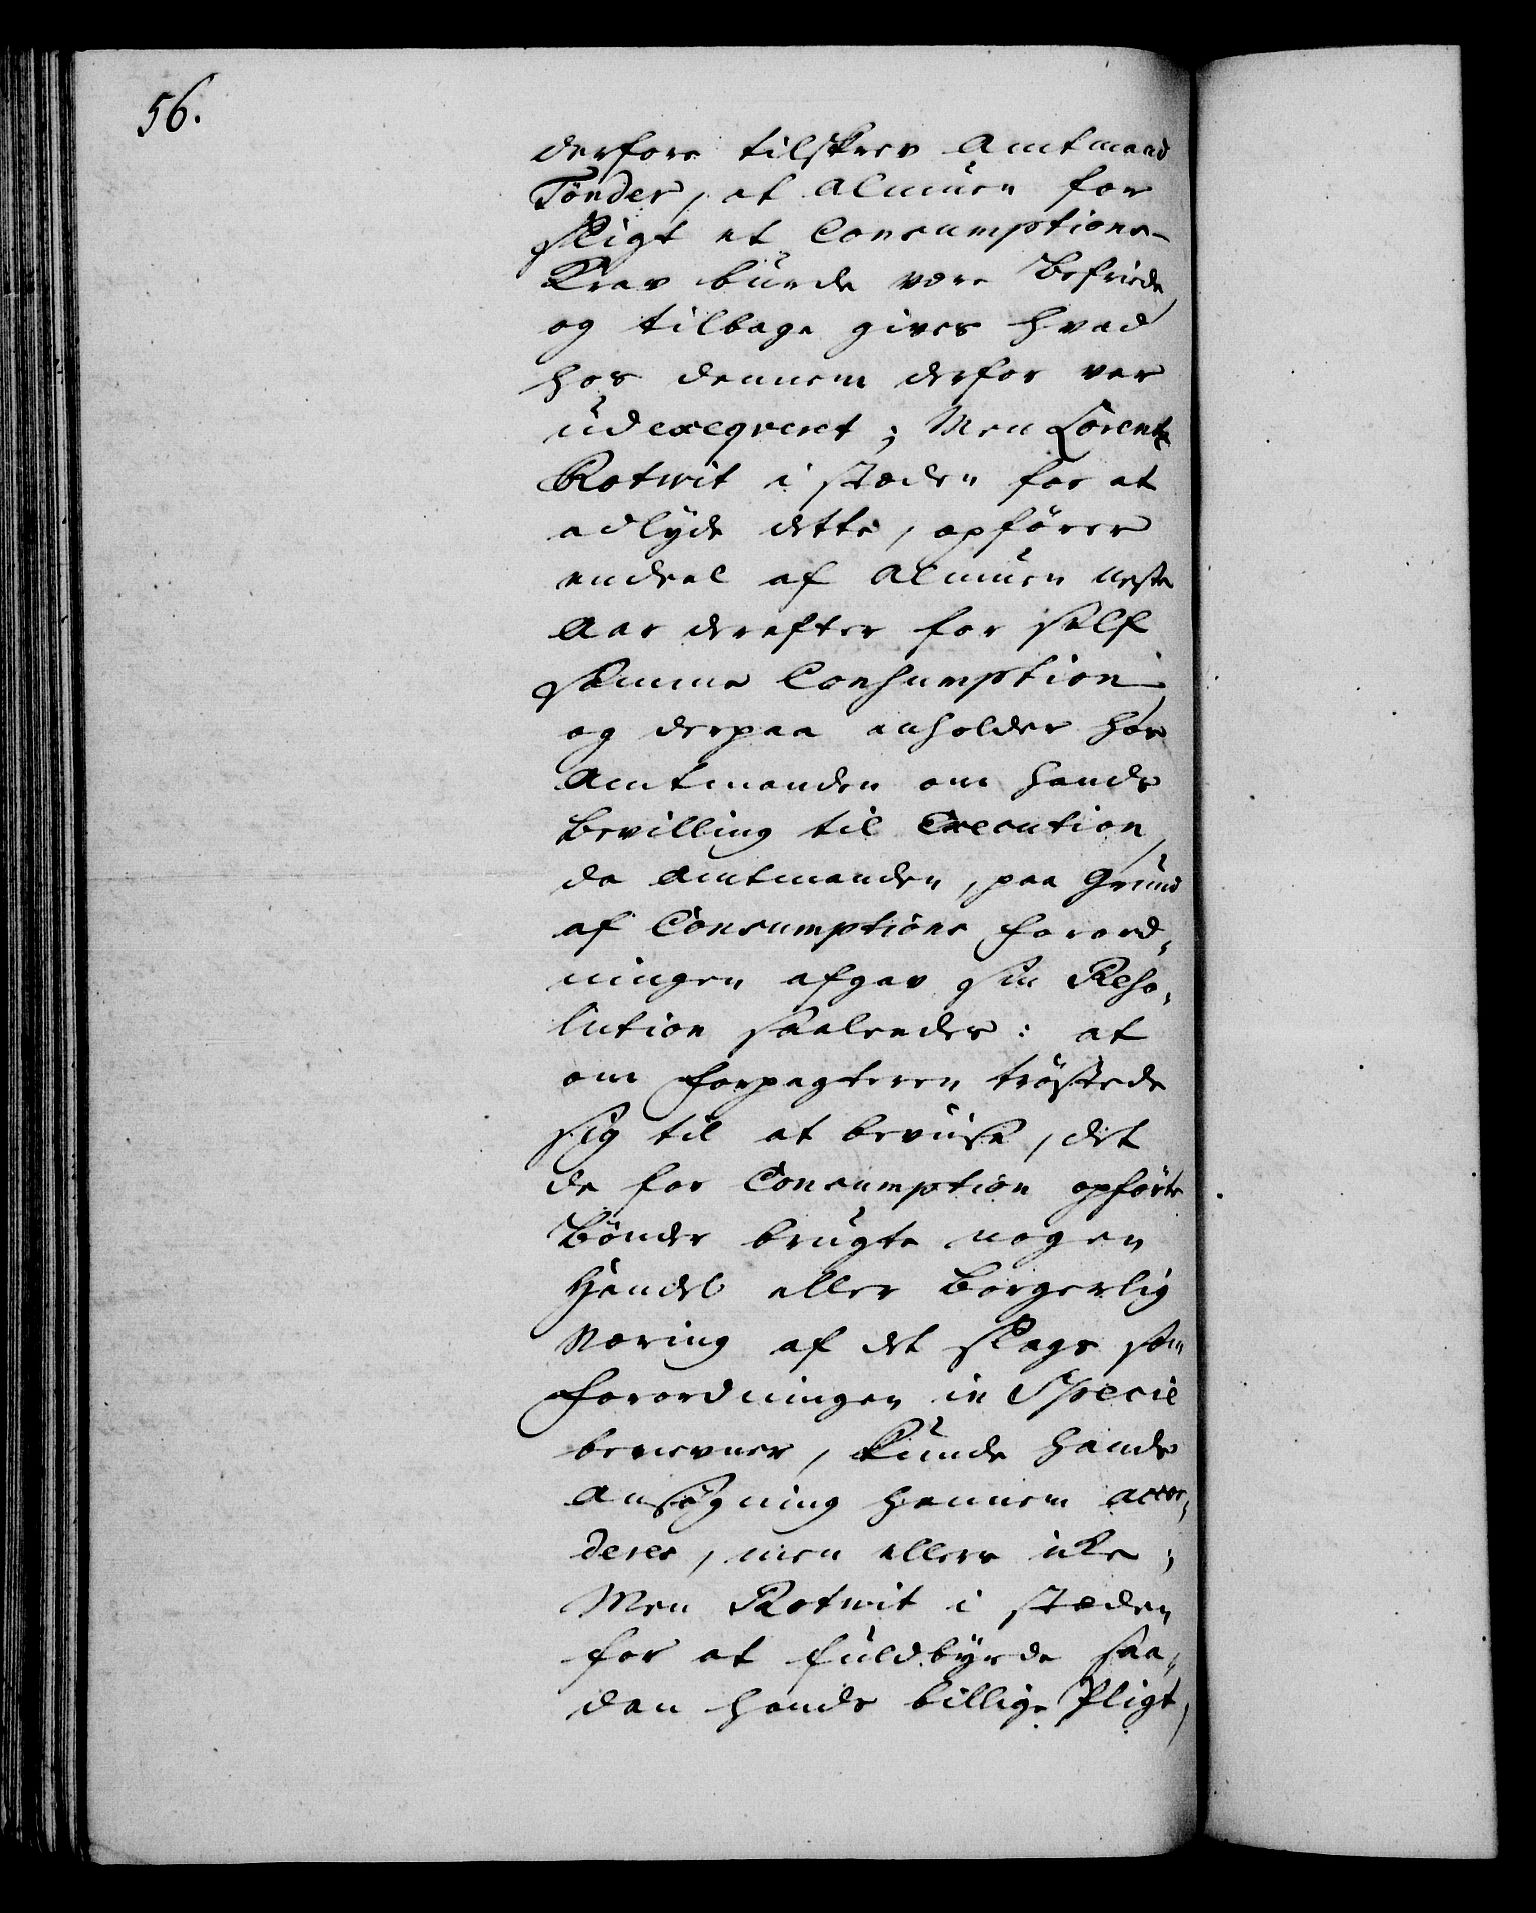 56.
derfore tilskrev Amtmand
Tönder, at Almuen for
sligt et Consumptions-
Krav burde være befriede,
og tilbage gives hvad
hos dennem derfor var
udexeqveret; Men Lorentz
Rotwit i stæden for at
adlyde dette, opfører
endeel af Almuen neste
Aar derefter for self
samme Consumption,
og derpaa anholder hos
Amtmanden om hands
bevilling til Execution,
da Amtmanden, paa Grund
af Consumptions Forord-
ningen afgav sin Reso-
lution saaledes: at
om Forpagteren trøstede
sig til at beviise, det
de for Consumption opførte
bønder brugte nogen
Handel eller borgerlig
Næring af det slags som
Forordningen in Specie
benevner, kunde hands
Ansøgning hannem accor-
deres, men ellers icke;
Men Rotwit i stæden
for at fuldbyrde saa-
dan hands billige Pligt,